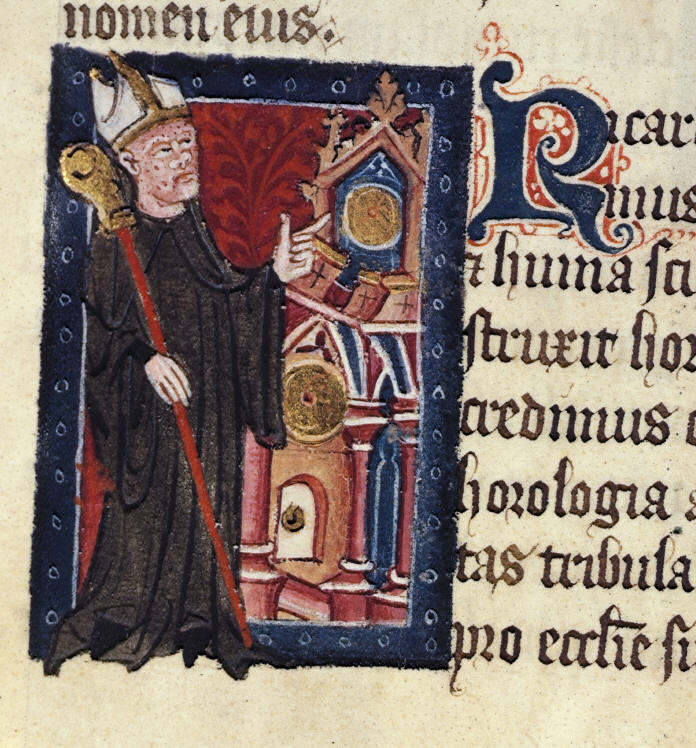 nomen eius.
Ricar
mus
& huma sci
struxit hor
credimus
horologia a
tas tribula
pro eccl̄ie si